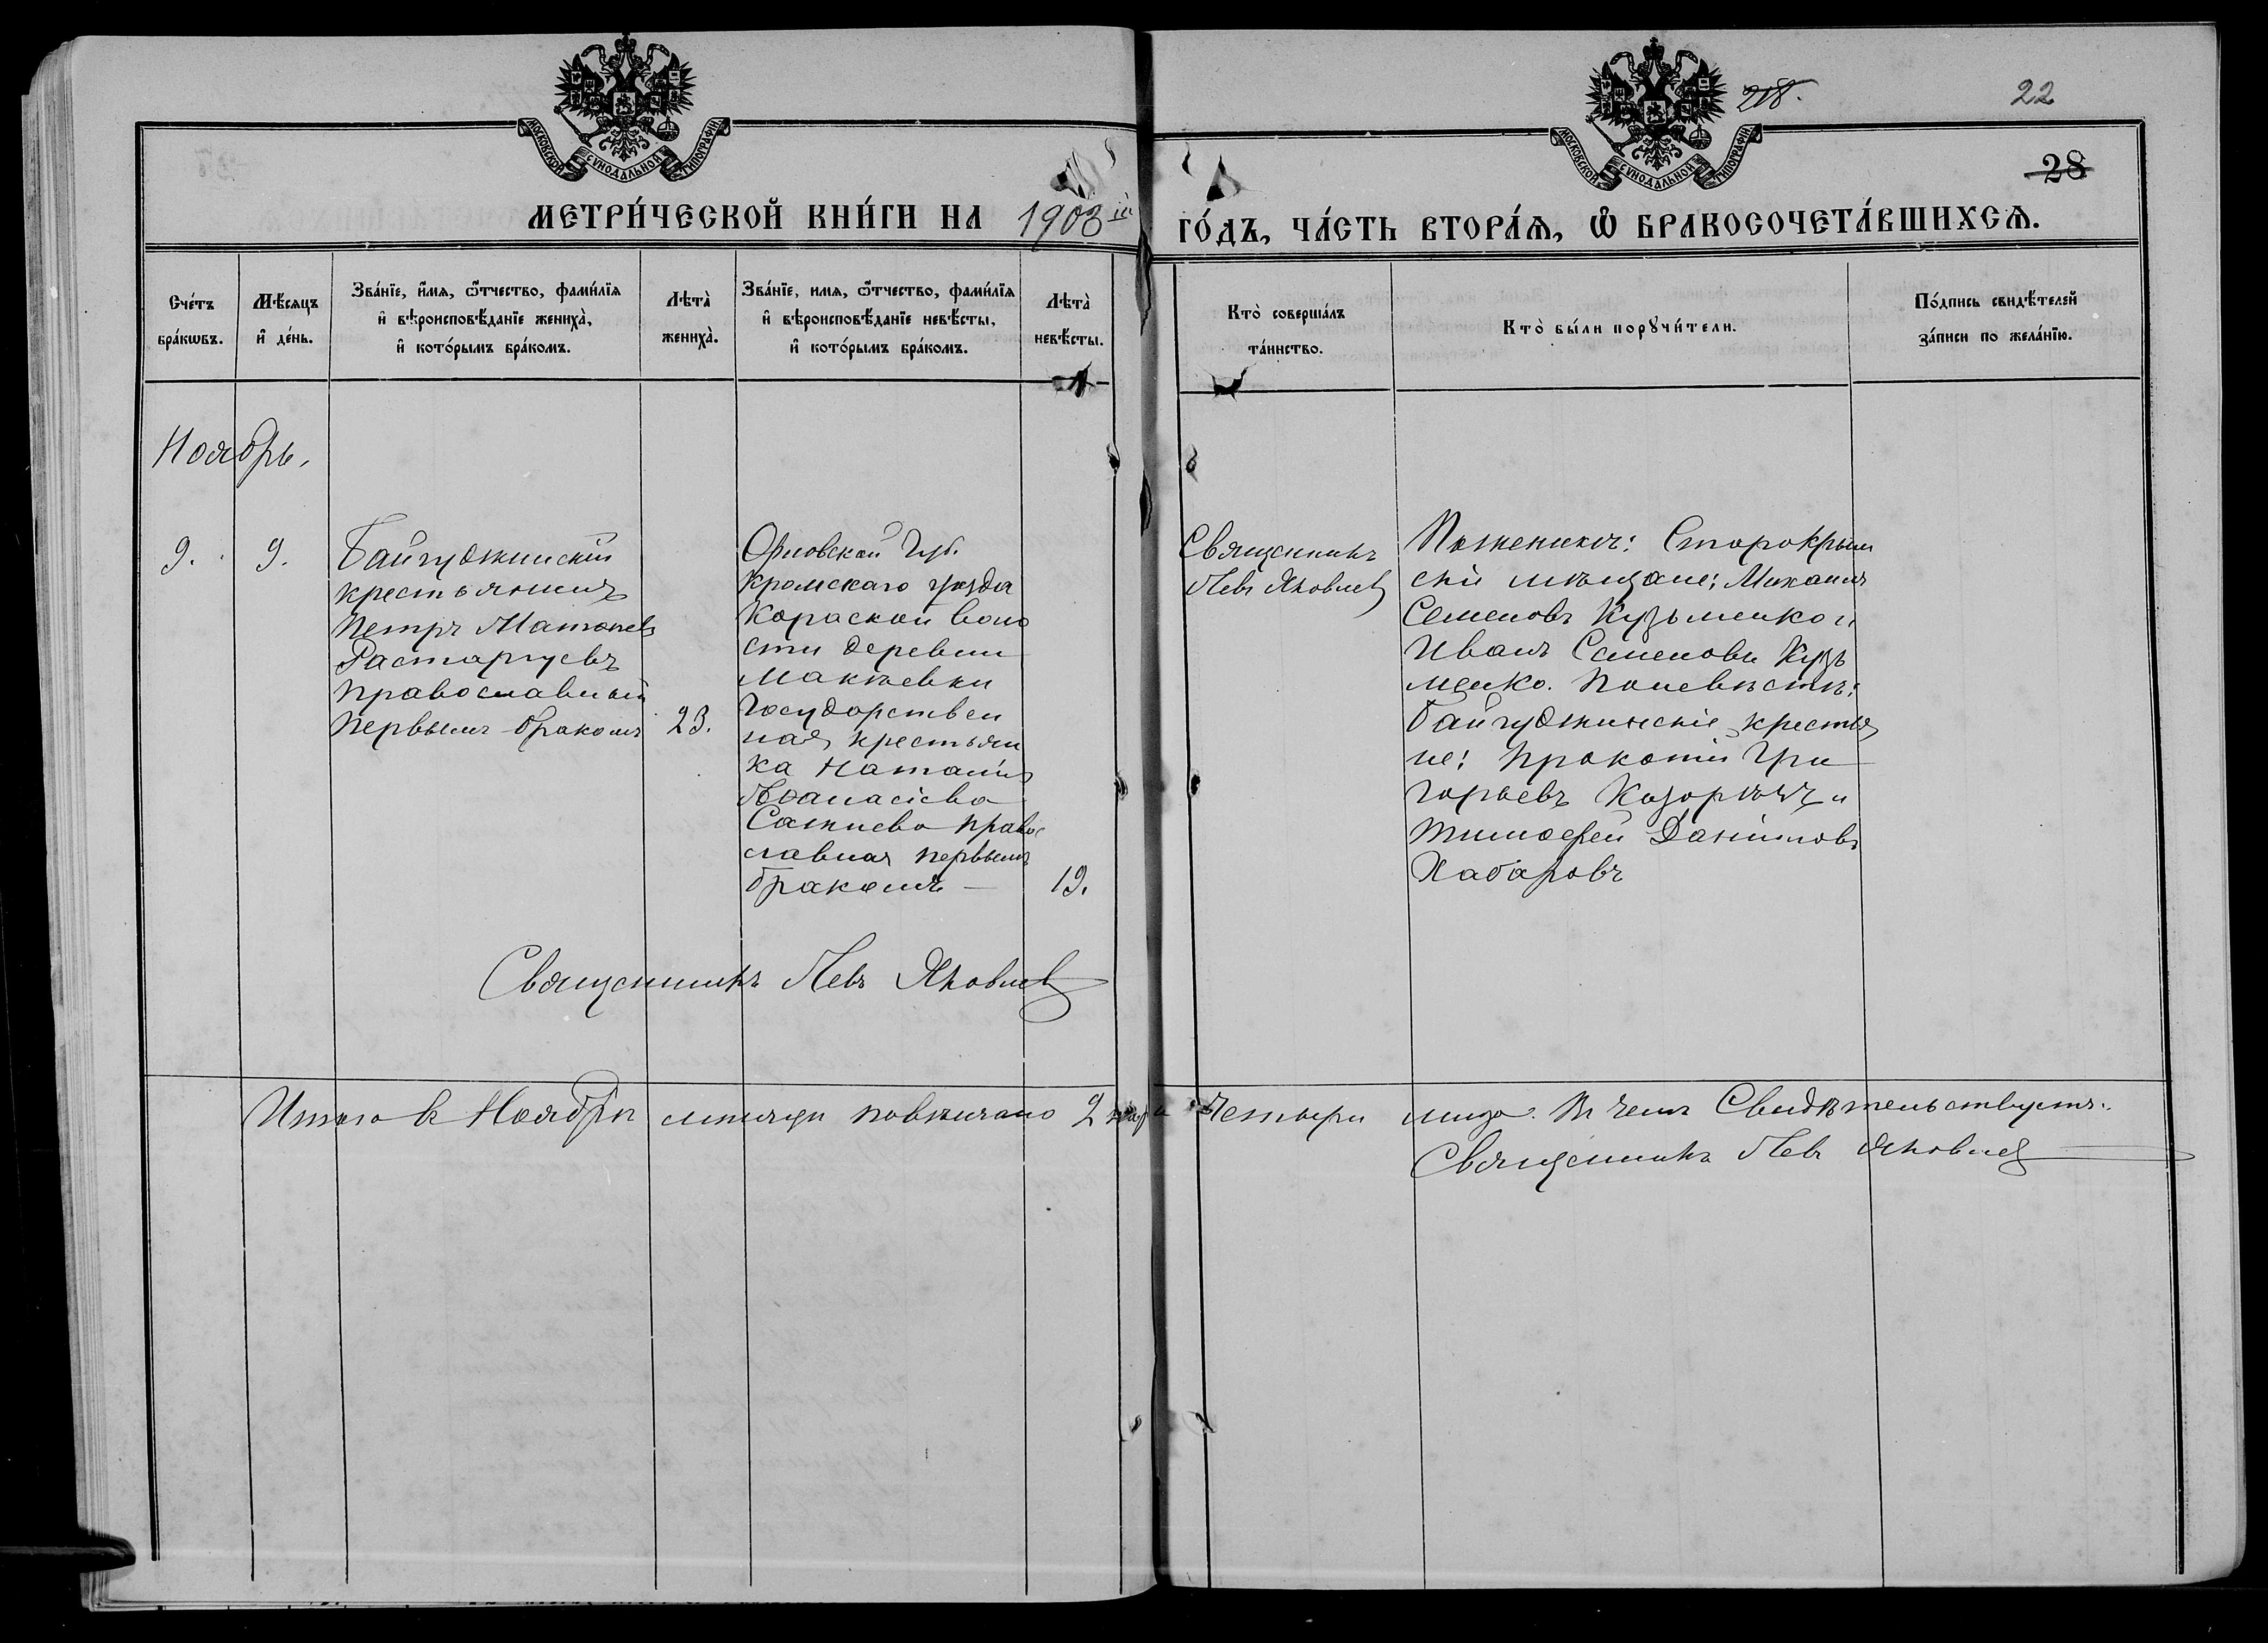 218.
22
28
МОСКОВСКОЙ СѴНОДАЛЬНОЙ ТИПОГРАФІИ
МОСКОВСКОЙ СѴНОДАЛЬНОЙ ТИПОГРАФІИ
МЕТРИ́ЧЕСКОЙ КНИ́ГИ НА 1903 ій ГО́ДЪ, ЧА́СТЬ ВТОРА́Ѧ, Ѽ БРАКОСОЧЕТА́ВШИХСѦ.
Сче́тъ
бра́кѡвъ.
Мѣ́сяцъ
и҆ де́нь.
Зва́нїе, и҆́мя, ѻ҆́тчество, фами́лїя
и҆ вѣроисповѣ́данїе жениха̀,
и҆ кото́рымъ бра́комъ.
Лѣта̀
жениха̀.
Зва́нїе, имя, ѻ҆́тчество, фами́лїя
и҆ вѣроисповѣ́данїе невѣ́сты,
и҆ кото́рымъ бра́комъ.
Лѣта̀
невѣ́сты.
Кто̀ соверша́лъ
та́инство.
Кто̀ бы́ли порꙋчи́тели.
По́дпись свидѣ́телей
за́писи по жела́нїю.
Ноябрь.
9.
9.
Байгуджинскій
крестьянинъ
Петръ
Растаргуевъ
православный
первымъ бракомъ
23.
Орловской Губ.
Кромскаго уѣзда
Кораской воло
сти деревни
Макѣевки
Государствен
ная крестьян
ка Наталія
Аѳанасіева
православная первымъ
бракомъ —
19.
Священникъ
Левъ Яковлев
По женихѣ: Старокрым
скіе мѣщане; Михаилъ
Семеновъ Кузьменко и
Иванъ Семеновъ Кузь
менко. По невѣстѣ:
Байгуджинскіе крестья
не: Прокотій Гри
горьевъ и
Тимофей Даниловъ
Хабаровъ
Священникъ Левъ Яковлев
Итого въ Ноябрѣ мѣсяцѣ повѣнчано 2 пары Четыри лица. Въ чемъ Свидѣтельствуетъ:
Священникъ Левъ Яковлев